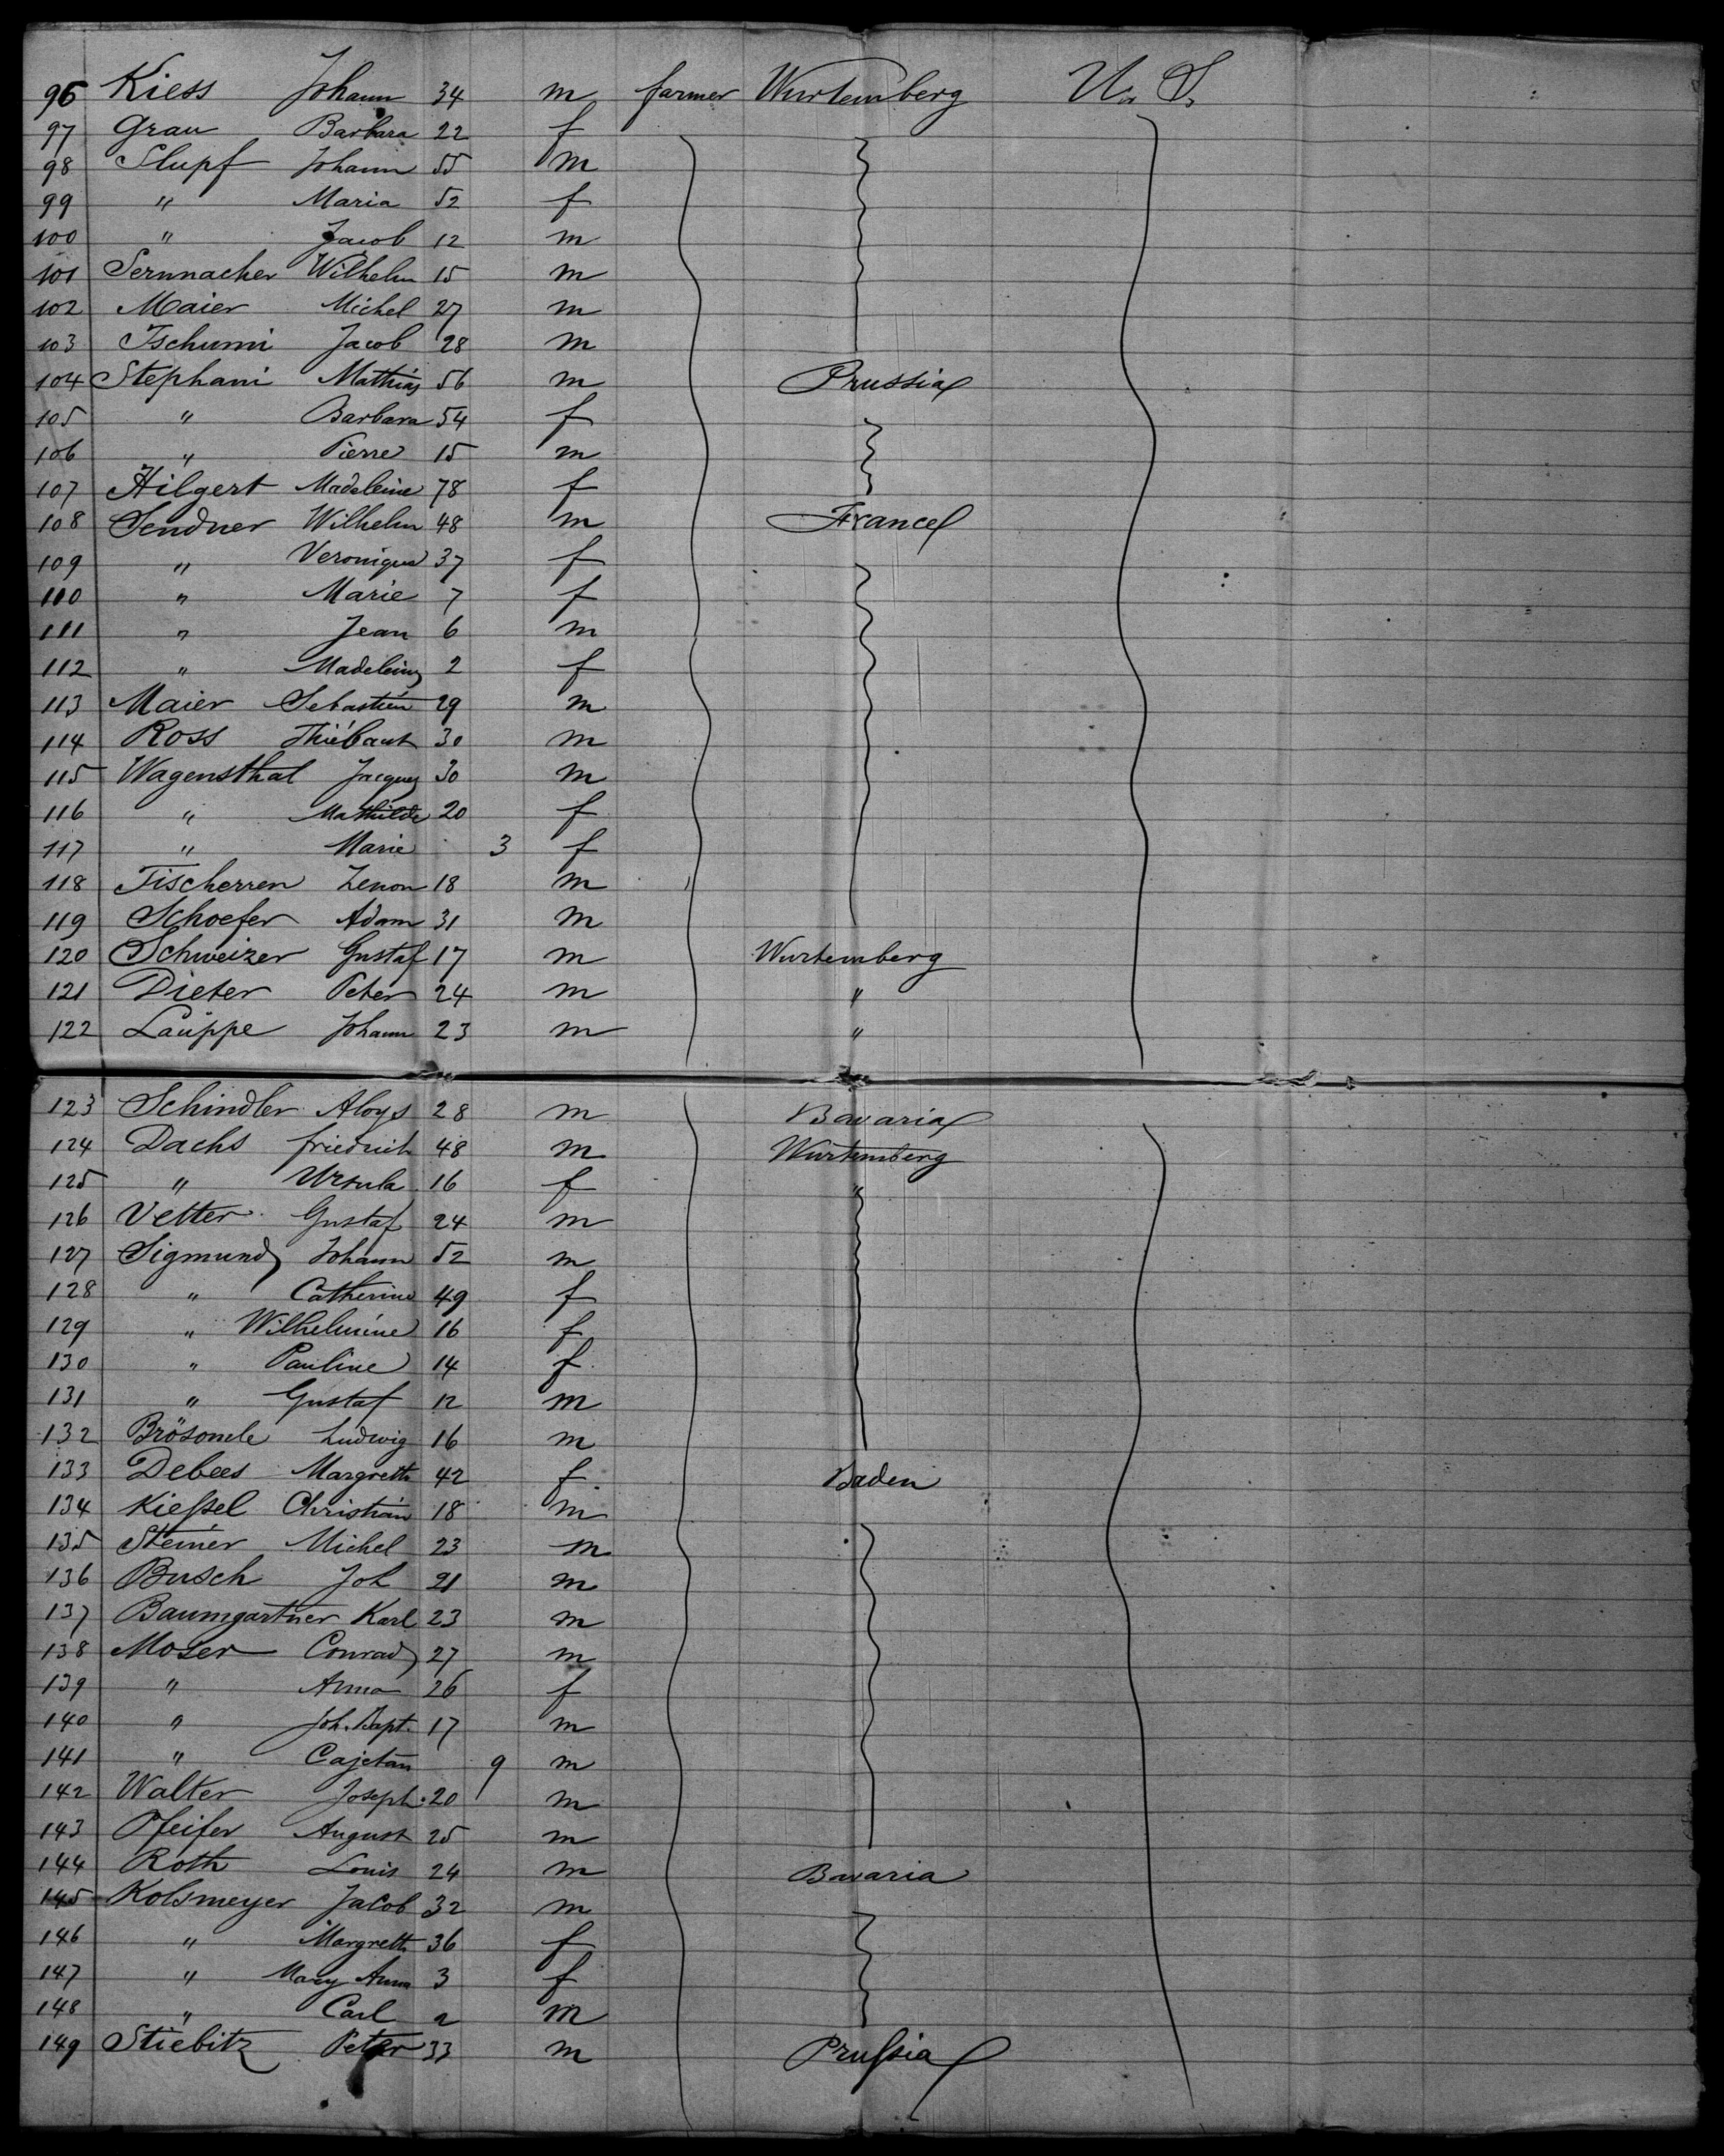 96 Kiess Johann 34 m farmer Wurtemberg U. S.
97 Grau Barbara 22 f
98 Slupf Johann 55 m
99 " Maria 52 f
100 " Jacob 12 m
101 Sernnacher Wilhelm 15 m
102 Maier Michel 27 m
103 Tschumi Jacob 28 m
104 Stephani Mathias 56 m Prussia
105 " Barbara 54 f
106 " Pierre 15 m
107 Hilgert Madeleine 78 f
108 Sendner Wilhelm 48 m France
109 " Veronique 37 f
110 " Marie 7 f
111 " Jean 6 m
112 " Madeleine 2 f
113 Maier Sebastien 29 m
114 Ross Thiébaut 30 m
115 Wagensthal Jacques 30 m
116 " Mathilde 20 f
117 " Marie 3 f
118 Tischerren Zenon 18 m
119 Schoefer Adam 31 m
120 Schweizer Gustaf 17 m Wurtemberg
121 Dieter Peter 24 m "
122 Lauppe Johann 23 m "
123 Schindler Aloys 28 m Bavaria
124 Dachs friedrich 48 m Wurtemberg
125 " Ursula 16 f "
126 Vetter Gustaf 24 m
127 Sigmund Johann 52 m
128 " Catherine 49 f
129 " Wilhelmine 16 f
130 " Pauline 14 f
131 " Gustaf 12 m
132 Brösomle Ludwig 16 m
133 Debees Margreth 42 f Baden
134 Kießel Christian 18 m
135 Steiner Michel 23 m
136 Busch Joh 21 m
137 Baumgartner Karl 23 m
138 Moser Conrad 27 m
139 " Anna 26 f
140 " Joh. Bapt. 17 m
141 " Cajetan 9 m
142 Walter Joseph 20 m
143 Pfeifer August 25 m
144 Roth Louis 24 m Bavaria
145 Kolsmeyer Jacob 32 m
146 " Margreth 36 f
147 " Mary Anna 3 f
148 " Carl 2 m
149 Stiebitz Peter 33 m Prußia